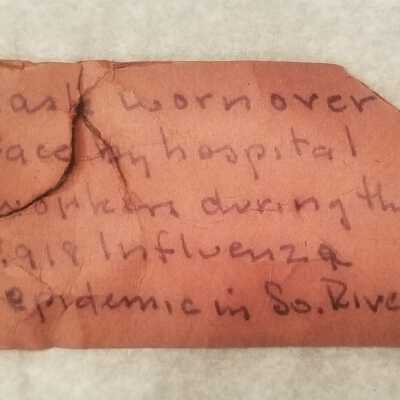 ask worn over
ace by hospital
workers during th
1918 Influenza
epidemic in So. Rive